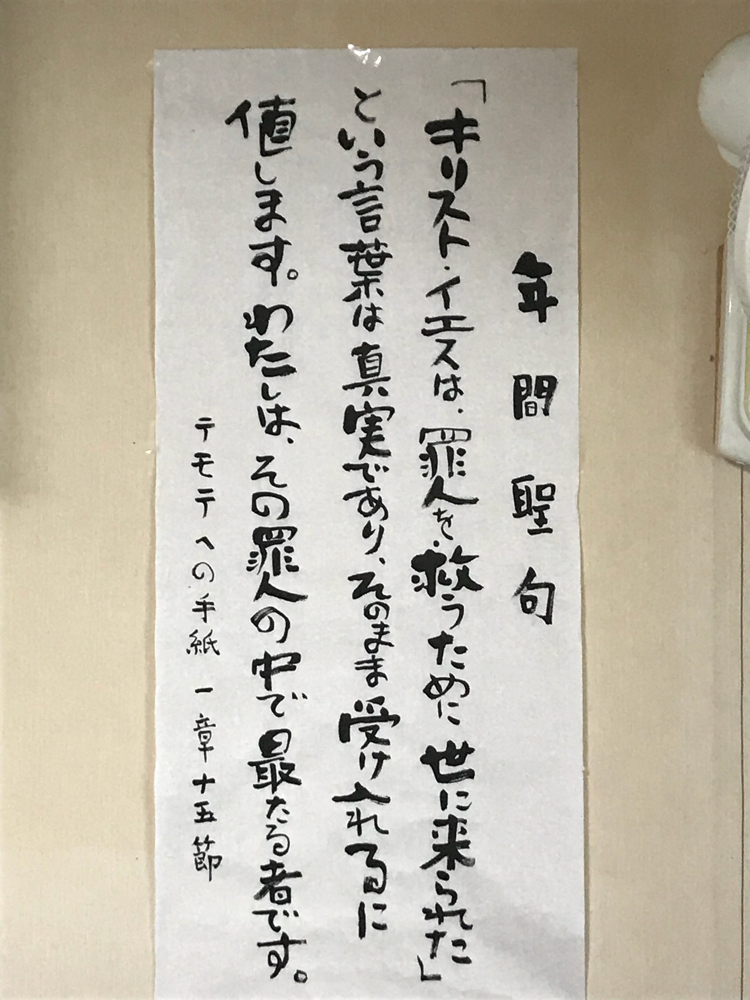 年間聖句
「キリスト・イエスは、罪人を、救うために世に来られた」
という言葉は真実であり、そのまま受け入れるに
値します。わたしは、その罪人の中で最たる者です。
テモテへの手紙 一章十五節